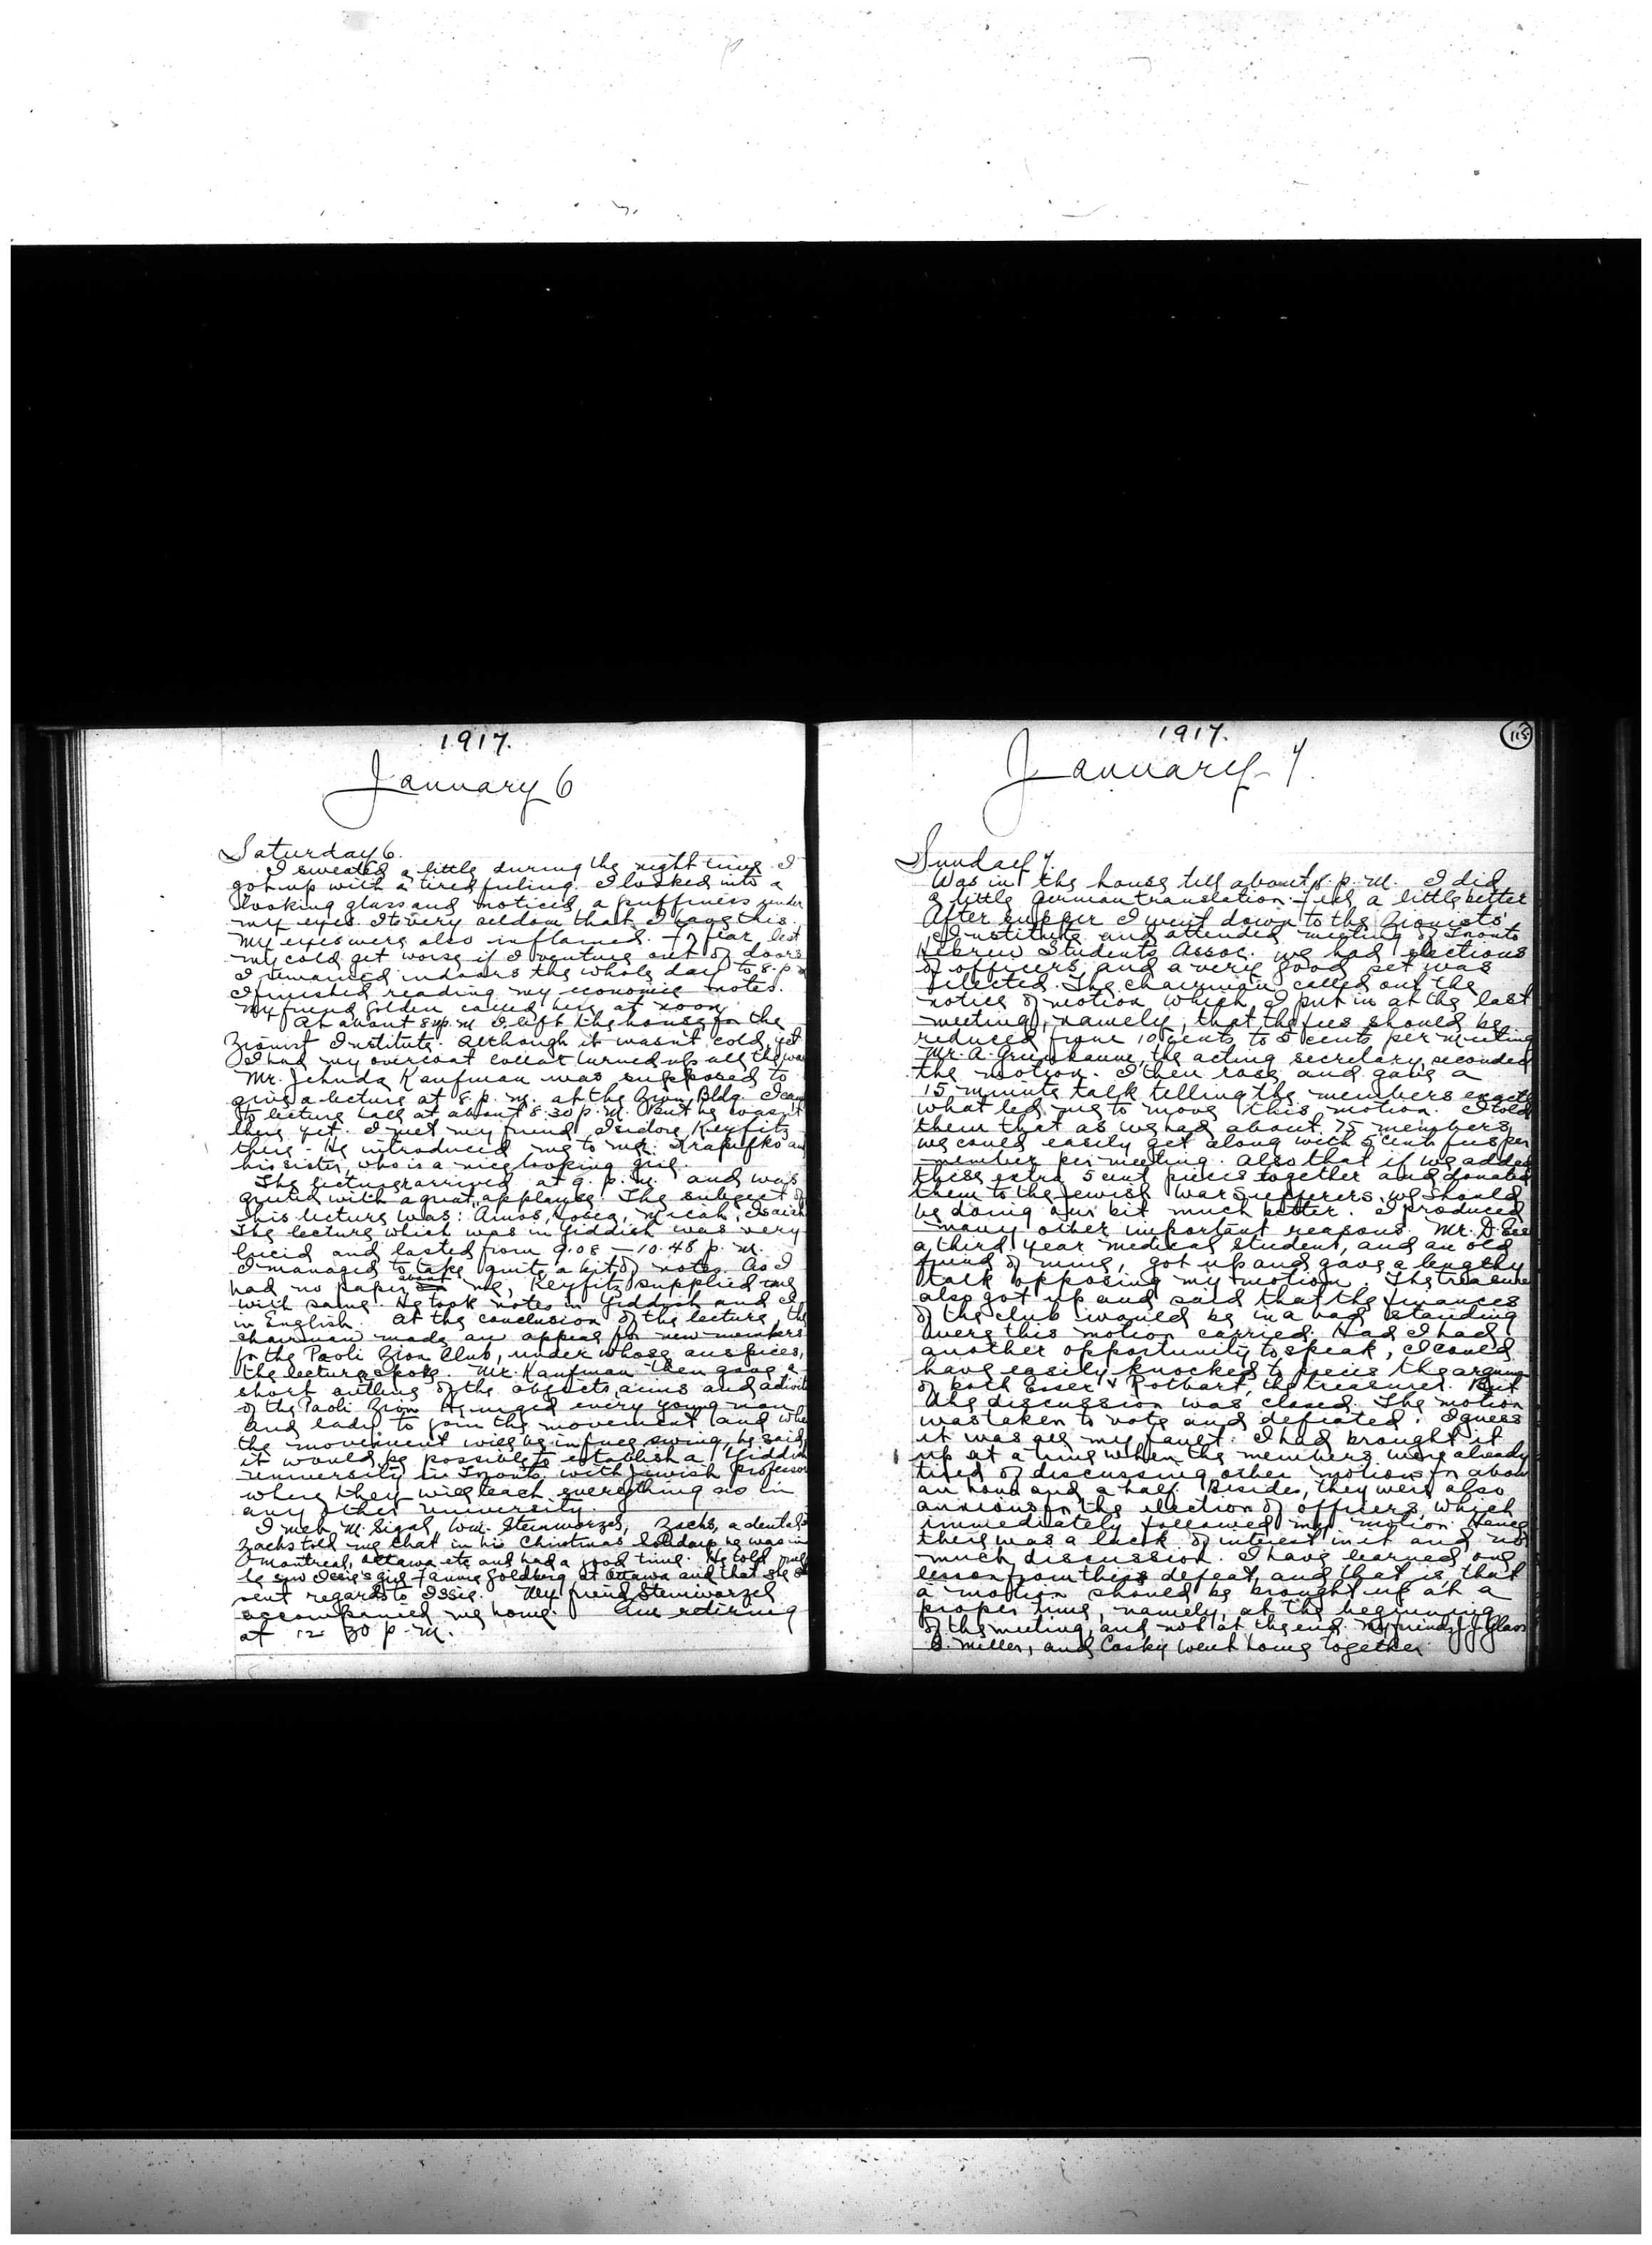 1917.
January 6
Saturday 6.
I sweated a little during the night time. I
got up with a tired feeling. I looked into a
looking glass and noticed a puffiness under
my eyes. It is very seldom that I have this.
My eyes were also inflamed. For fear lest
my cold get worse if I venture out of doors
I remained indoors the whole day to 8. p.
I finished reading my economic notes.
My friend Golden called here at noon
At about 8 p.m I left the house for the
Zionist Institute. Although it wasn't cold, yet
I had my overcoat collar turned up all the way
Mr. Jehuda Kaufman was supposed to
give a lecture at 8 p.m. at the Zion Bldg. I came
to lecture hall at about 8:30 p.m. But he wasn't
there yet. I met my friend Isidore Keyfitz
there. He introduced me to Mr. and
his sister, who is a nice looking girl.
The lecturer arrived at 9. p.m. and was
greeted with a great applause. The subject of
this lecture was: Amos, Hosea, Micah, Isaiah
The lecture which was in Yiddish was very
lucid and lasted from 9.08 — 10.48 p.m.
I managed to take quite a bit of notes. As I
had no paper about me, Keyfitz supplied me
with same. He took notes in Yiddish and I
in English. At the conclusion of the lecture, the
chairman made an appeal for new members
for the Paoli Zion Club, under whose auspices,
the lecturer spoke. Mr. Kaufman then gave a
short outline of the objects, aims and activit
of the Paoli Zion. He urged every young man
and lady to join the movement and when
the movement will be in full swing, he said,
it would be possible to establish a Yiddish
University in Toronto with Jewish professor
where they will teach everything as in
any other university.
I met M. Signal, Wm. Steinwarzel, Zachs, a dental s
Zachs told me that in his Christmas holidays he was in
Montreal, Ottawa etc and had a good time. He told me
he saw Issie's girl Fannie Goldberg at Ottawa and that she
sent regards to Issie. My friend Steinwarzel
accompanied me home. Am retiring
at 12 30 p.m.
1917.
113
January 7.
Sunday 7.
Was in the house till about 8. p.m. I did
a little German translation. Feel a little better
After supper I went down to the Zionists'
Institute and attended meeting of Toronto
Hebrew Students Assoc. We had elections
of officers and a very good set was
selected. The chairman called out the
notice of motion which I put in at the last
meeting, namely, that the fees should be
reduced from 10 cents to 5 cents per meeting
Mr. A. , the acting secretary, seconded
the motion. I then rose and gave a
15 minute talk telling the members exactly
what led me to move this motion. I told
them that as we had about 75 members,
we could easily get along with 5 cent fees per
member per meeting. Also that if we added
these extra 5 cent pieces together and donated
them to the Jewish War Sufferers, we should
be doing our bit much better. I produced
many other important reasons. Mr. D. Ess
a third year medical student, and an old
friend of mine, got up and gave a lengthy
talk opposing my motion. The treasurer
also got up and said that the finances
of the club would be in a bad standing
were this motion carried. Had I had
another opportunity to speak, I could
have easily knocked to pieces the argum
of both Esser & Rotbart, the treasurer. But
the discussion was closed. The motion
was taken to vote and defeated. I guess
it was all my fault. I had brought it
up at a time when the members were already
tired of discussing other motions for about
an hour and a half. Besides, they were also
anxious for the election of officers, which
immediately followed my motion. Hence
there was a lack of interest in it and not
much discussion. I have learned one
lesson from this defeat, and that is that
a motion should be brought up at a
proper time, namely, at the beginning
of the meeting, and not at the end. My friends J. Glass
B. Miller, and Casky went home together